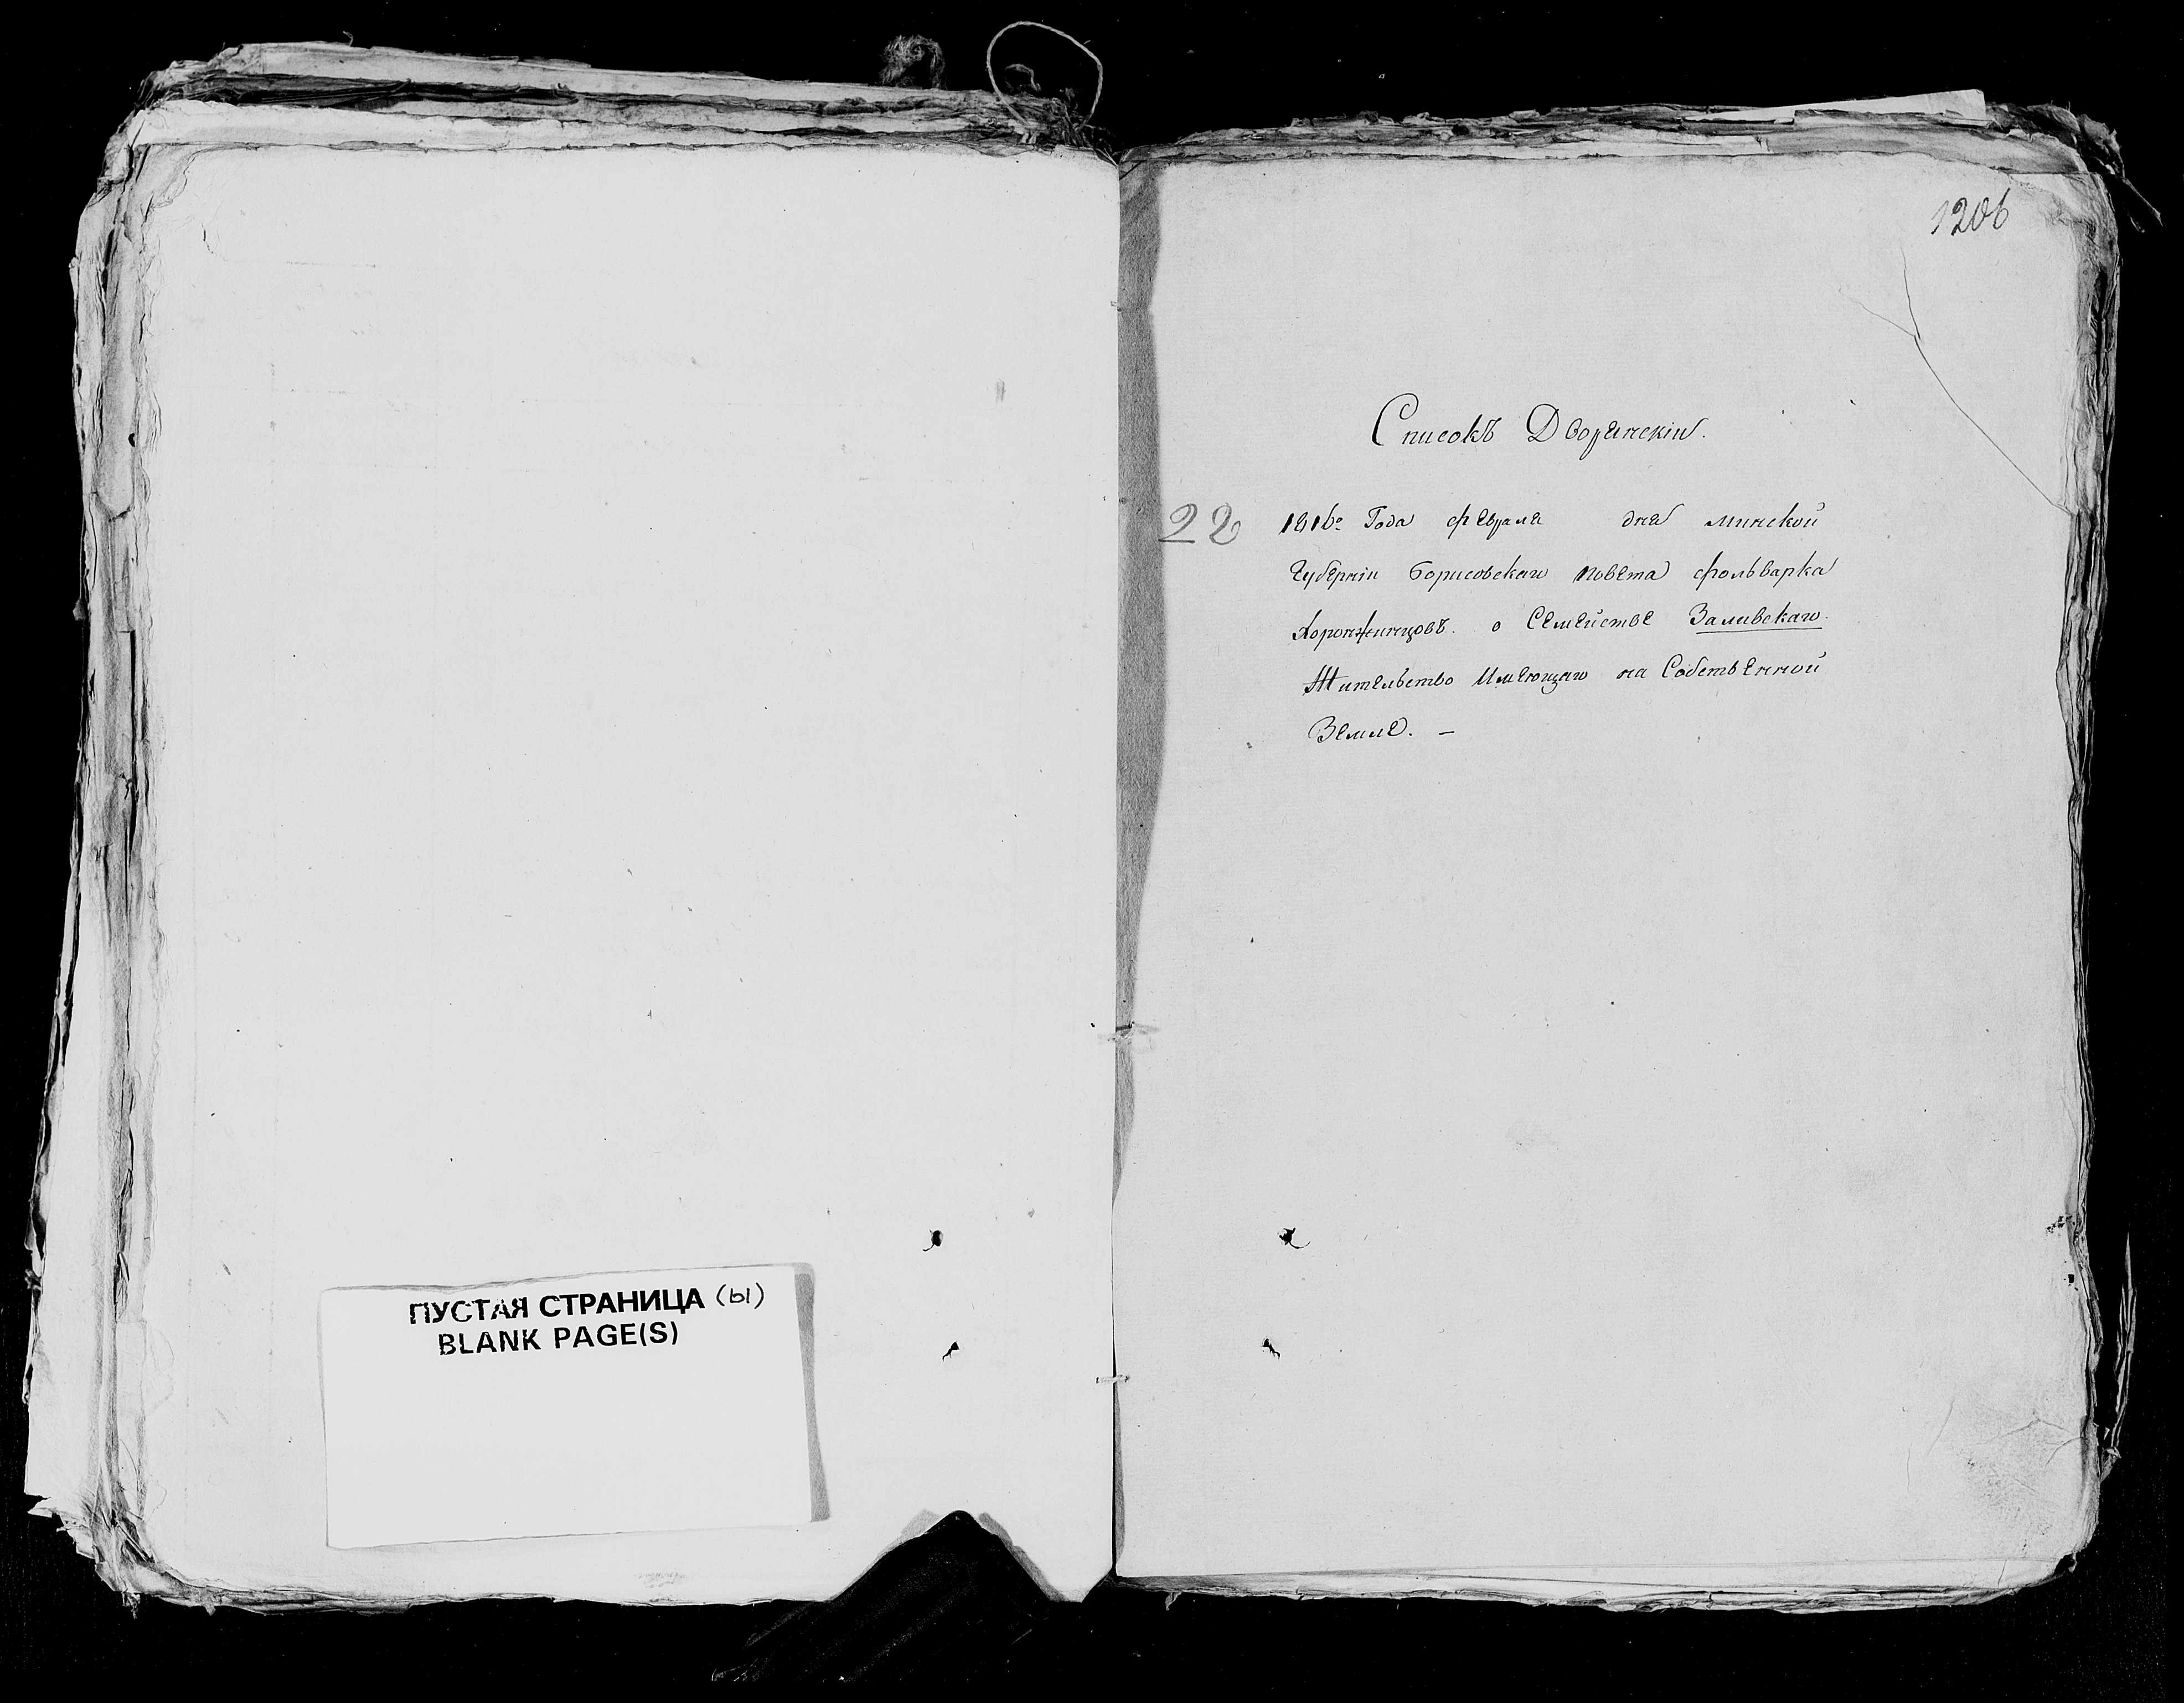 ПУСТАЯ СТРАНИЦА (ы)
BLANK PAGE(S)
1206
Списокъ Дворянскiи.
22
1816го Года февраля дня минской
Губернiи Борисовскаго повѣта фольварка
о Семействе Заливскаго.
Жительство Имеющаго на Собственной
Земле. –